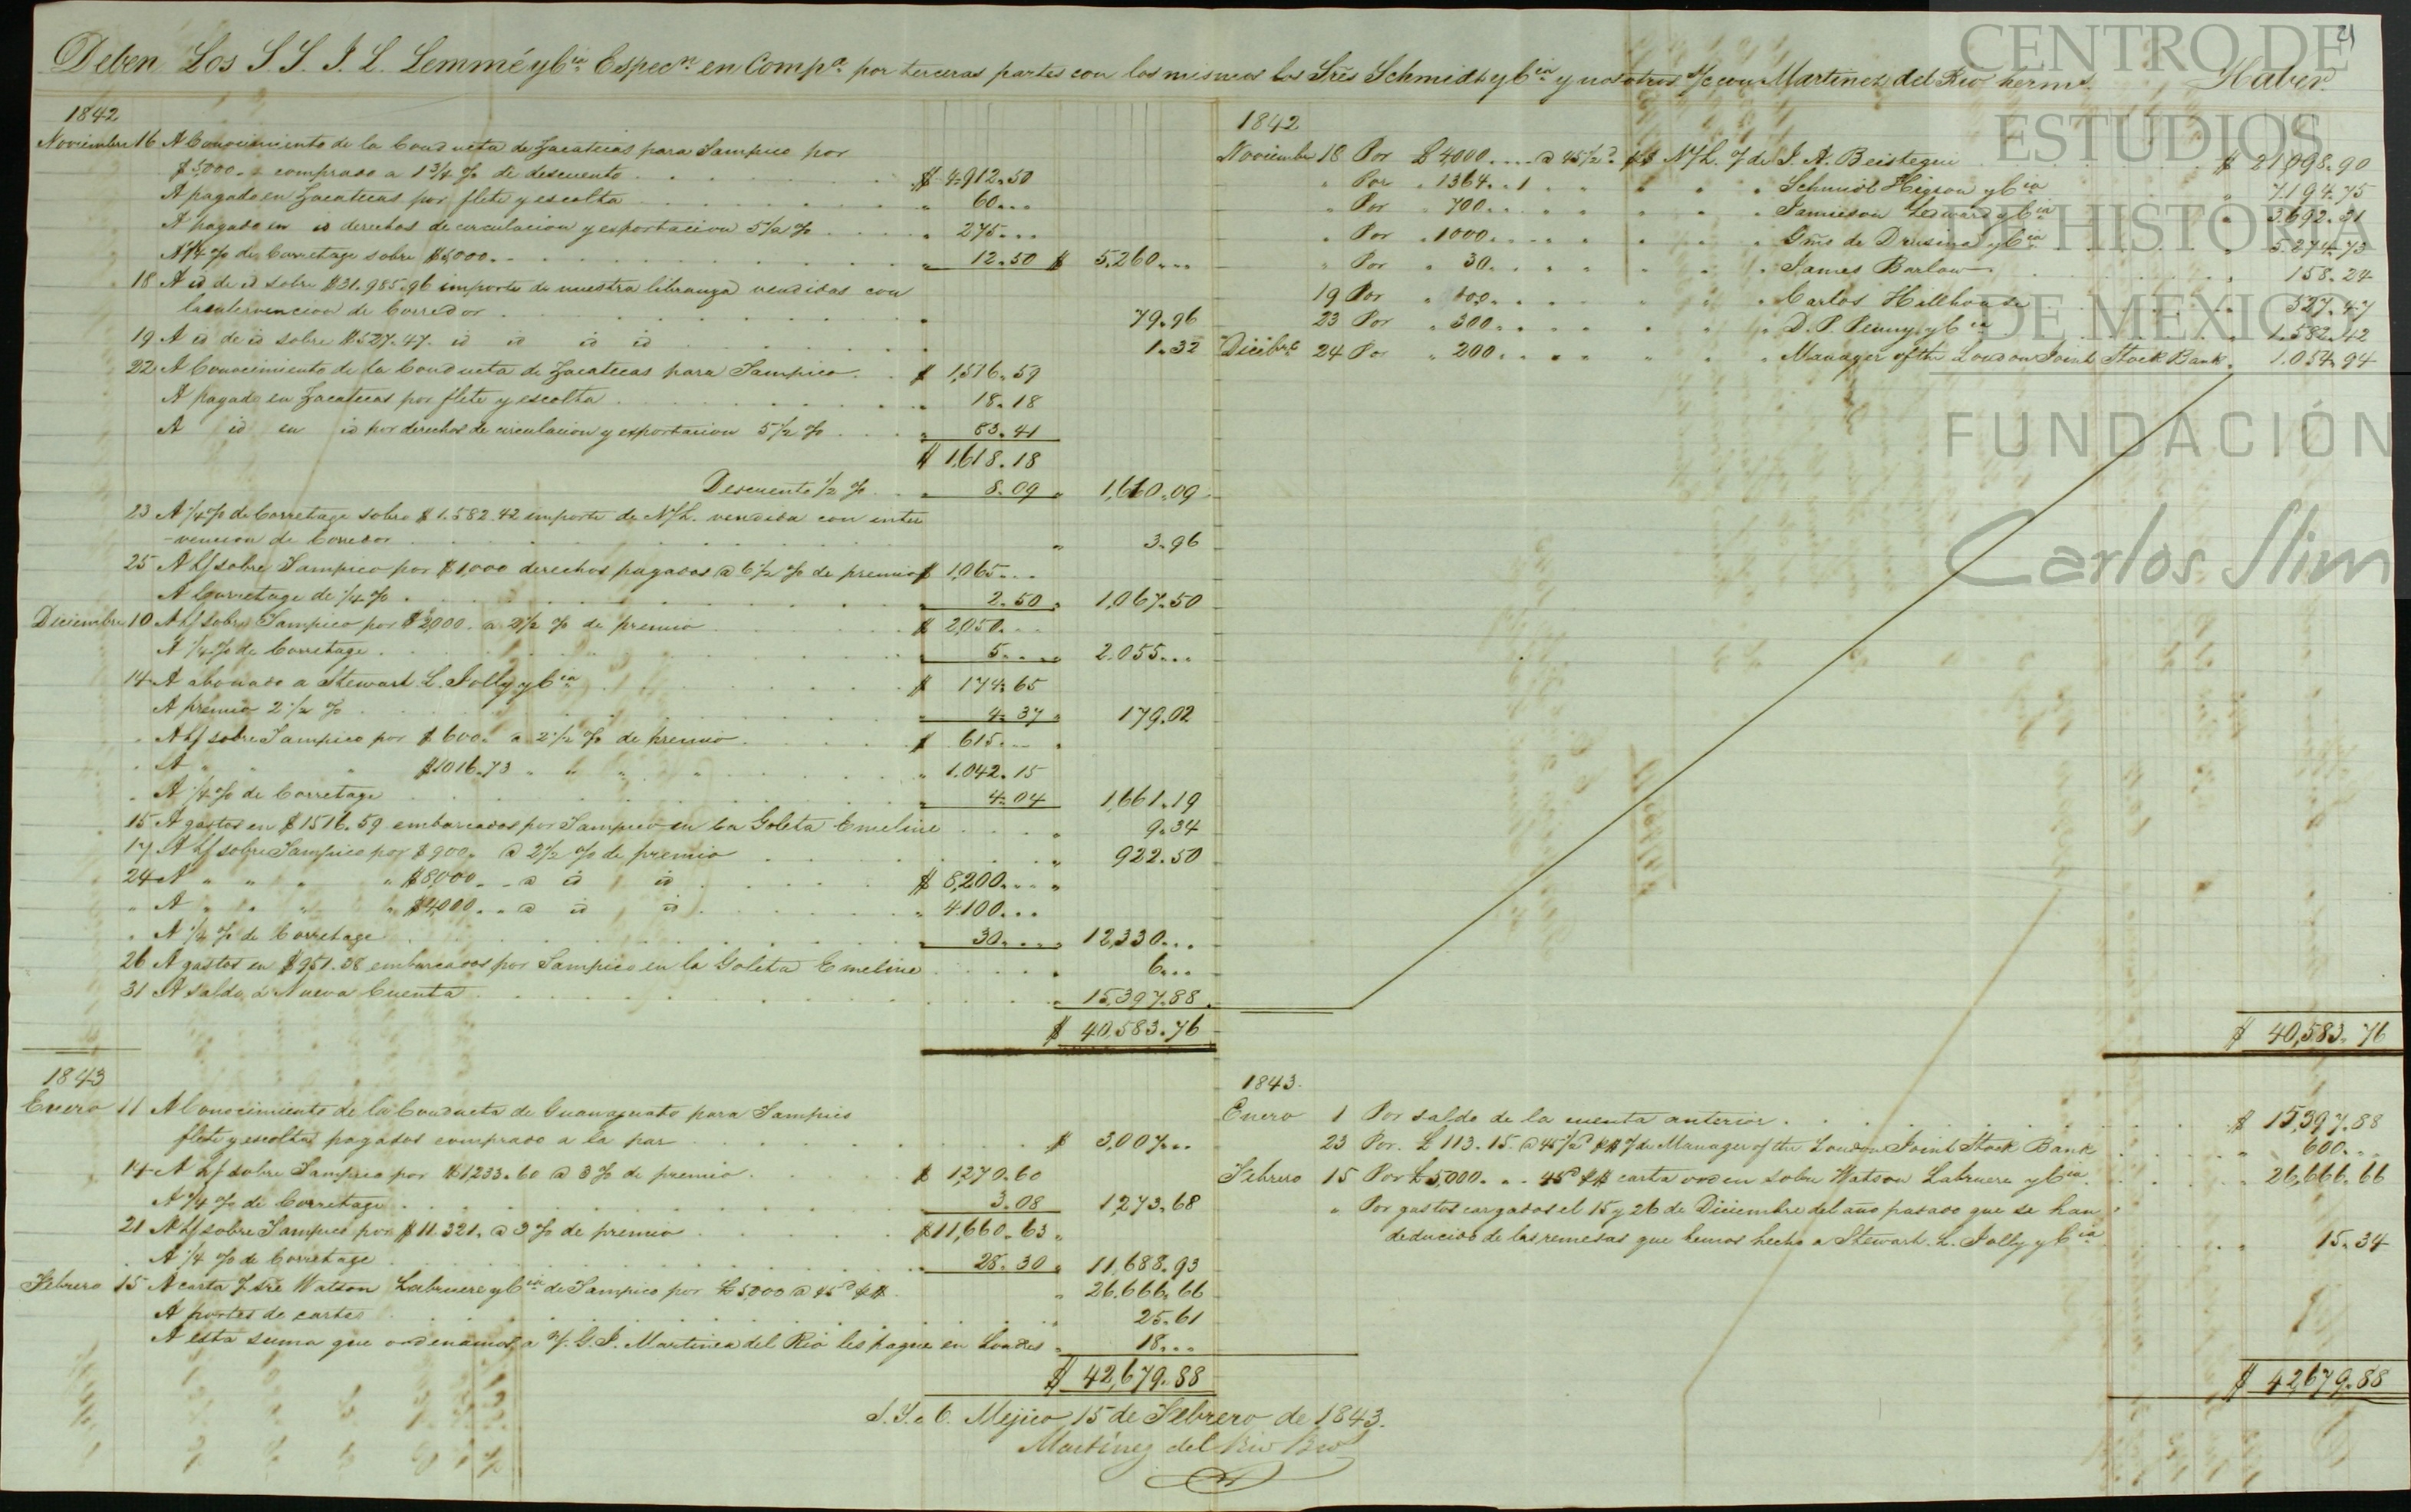 Deben Los S.S. J. L. Lemmé y Cia Especn en Compa por terceras partes con los mismos los Sres Schmidt y Cia y nosotros S/C con Martinez del Rio herms. Haber
1842
Noviembre 16 A Conocimiento de la Conducta de Zacatecas para Tampico por
$5,000.. comprado a 1 3/4 % de descuento $ 4,912.50
A pagado en Zacatecas por flete y escolta 60...
A pagado en id derechos de circulacion y esportacion 5 1/2 % 275...
A 1/4 % de Corretage sobre $5,000.. 12.50 $ 5,260...
18 A id de id sobre $31.985.96 importe de nuestra libranza vendidas con
la intervencion de Corredor 79.96
19 A id de id sobre $527.47. id id id id 1.32
22 A Conocimiento de la Conducta de Zacatecas para Tampico $ 1,516.59
A pagado en Zacatecas por flete y escolta 18.18
A id en id por derechos de circulacion y esportacion 5 1/2 % 83.41
$ 1,618.18
Descuento 1/2 % 8.09 1,610.09
23 A 1/4 % de Corretage sobre $1.582.42 importe de N/L. vendida con inter
-vencion de Corredor 3.96
25 A L/ sobre Tampico por $1,000 derechos pagados @ 6 1/2 % de premio $ 1,065...
A Corretage de 1/4 % 2.50 1,067.50
Diciembre 10 A L/ sobre Tampico por $2,000. a 2 1/2 % de premio $ 2,050...
A 1/4 % de Corretage 5... 2,055...
14 A abonado a Stewart L. Jolly y Cia $ 174.65
A premio 2 1/2 % 4.37 179.02
A L/ sobre Tampico por $600. a 2 1/2 % de premio $ 615...
A " " $1016.73 " " " " 1.042.15
A 1/4 % de Corretage 4.04 1,661.19
15 A gastos en $1516.59 embarcados por Tampico en la Goleta Emeline 9.34
17 A L/ sobre Tampico por $900. @ 2 1/2 % de premio 922.50
24 A " " " " $8,000.. @ id id $ 8,200...
" A " " " " $4,000.. @ id id 4.100...
" A 1/4 % de Corretage 30... 12,330...
26 A gastos en $951.28 embarcados por Tampico en la Goleta Emeline 6...
31 A saldo a Nueva Cuenta 15,397.88
$ 40,583.76
1843
Enero 11 A Conocimiento de la Conducta de Guanajuato para Tampico
flete y escolta pagados comprado a la par $ 3,007...
14 A L/ sobre Tampico por $1233.60 @ 3 % de premio $ 1,270.60
A 1/4 % de Corretage 3.08 1,273.68
21 A L/ sobre Tampico por $11.321. @ 3 % de premio $11,660.63
A 1/4 % de Corretage 28.30 11,688.93
Febrero 15 A carta f Sre Watson Labruere y Cia de Tampico por £5,000 @ 45d p$ 26.666.66
A portes de cartas 25.61
A esta suma que ordenamos a f. G. J. Martinez del Rio les pague en Londres 18...
$ 42,679.88
1842
Noviembre 18 Por £ 4000.... @ 45 1/2 d p$ N/L. f de J. A. Beistegui $ 21,098.90
" Por " 1364..1 " " " " Schmidt Higson y Cia 7.194.75
" Por " 700.. " " " " Jamieson Ledward y Cia 3,692.31
" Por " 1000.. " " " " Gmo de Drusina y Cia 5.274.73
" Por " 30. " " " " James Barlow 158.24
19 Por " 100. " " " " Carlos Hillhouse 527.47
23 Por " 300. " " " " D. P. Penny y Cia 1.582.42
Dicibre 24 Por " 200. " " " " Manager of the London Joint Stock Bank 1.054.94
$ 40,583.76
1843.
Enero 1 Por saldo de la cuenta anterior $ 15,397.88
23 Por. £ 113.15. @ 45 1/2 d p$ f de Manager of the London Joint Stock Bank 600...
Febrero 15 Por £5,000... 45d p$ carta orden sobre Watson Labruere y Cia 26,666.66
" Por gastos cargados el 15 y 26 de Diciembre del año pasado que se han
deducido de las remesas que hemos hecho a Stewart. L. Jolly y Cia 15.34
$ 42,679.88
S. Y. o C. Mejico 15 de Febrero de 1843.
Martinez del Rio
21
CENTRO DE
ESTUDIOS
DE HISTORIA
DE MEXICO
FUNDACIÓN
Carlos Slim